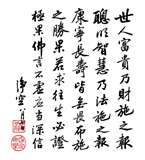 世人富貴乃財施之報
聰明智慧乃法施之報
康寧長壽皆無畏布施
之勝果若求往生必證
極果佛言不虛應當深信
淨空